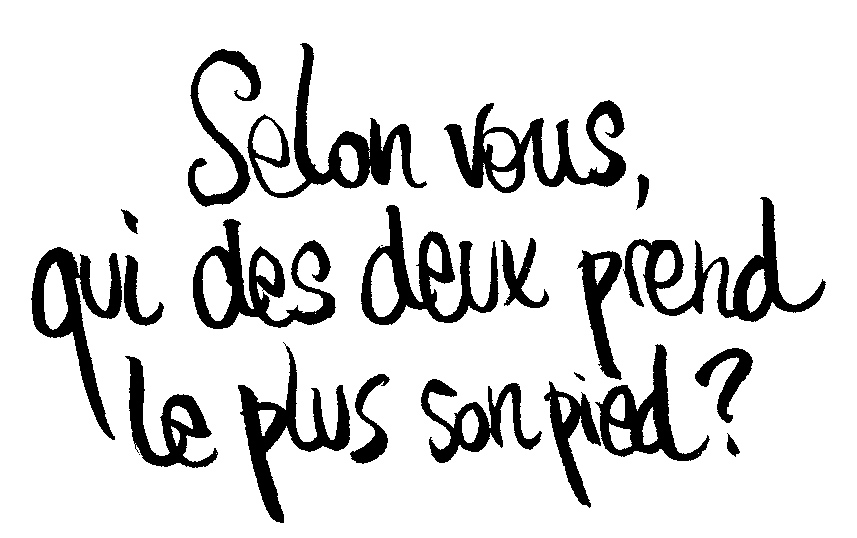 Selon vous,
qui des deux prend
le plus son pied?